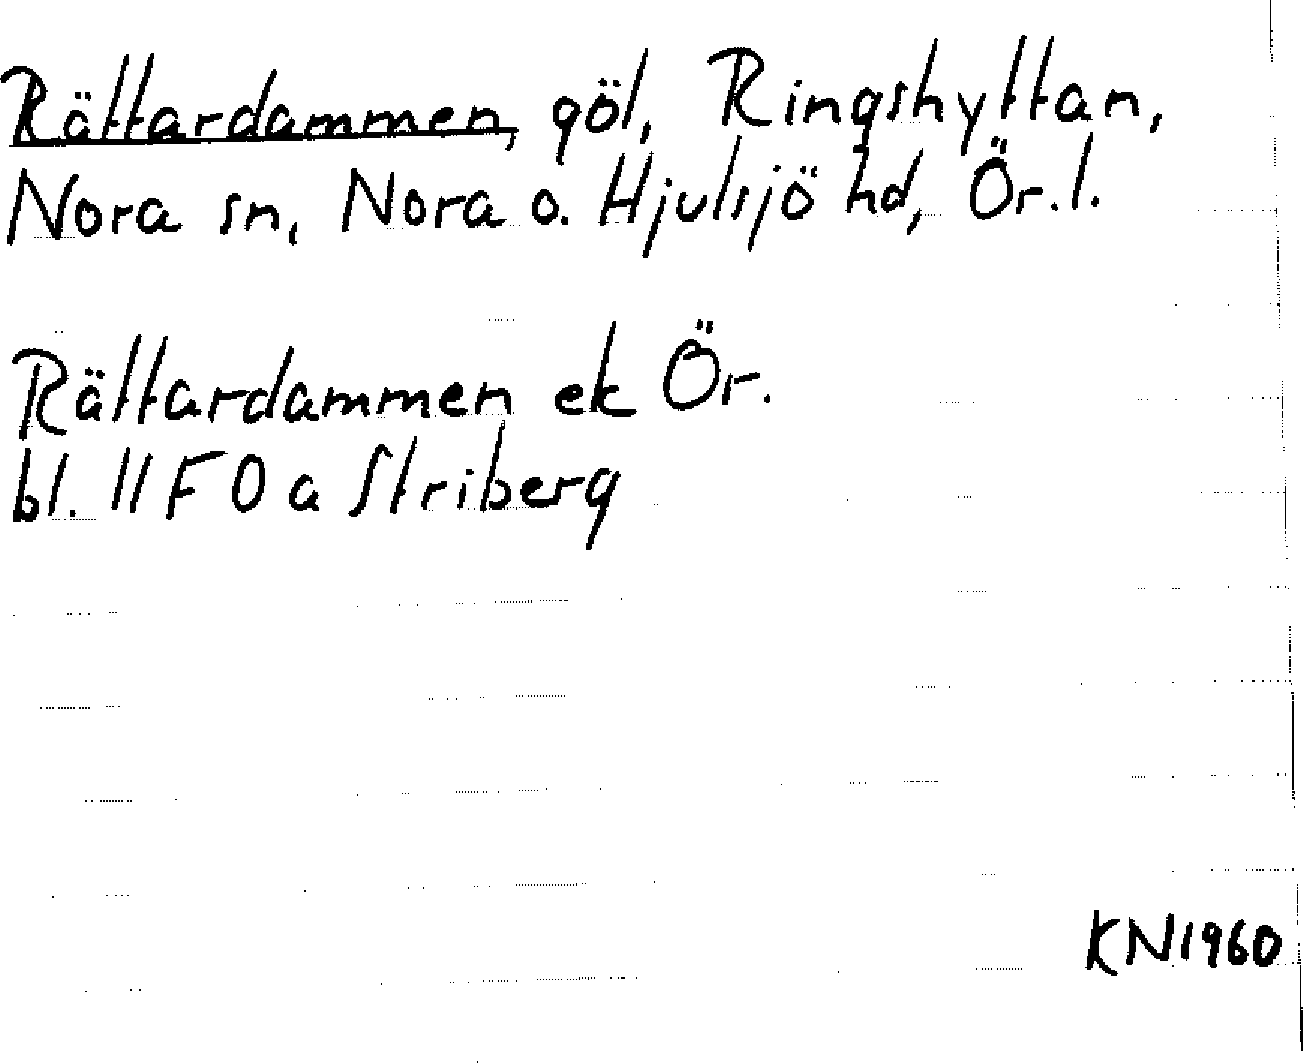 Rättardammen, göl, Ringshyttan,
Nora sn, Nora o. Hjulsjö hd, Ör.l.
Rättardammen ek Ör.
bl. 11F0a Striberg
KN1960